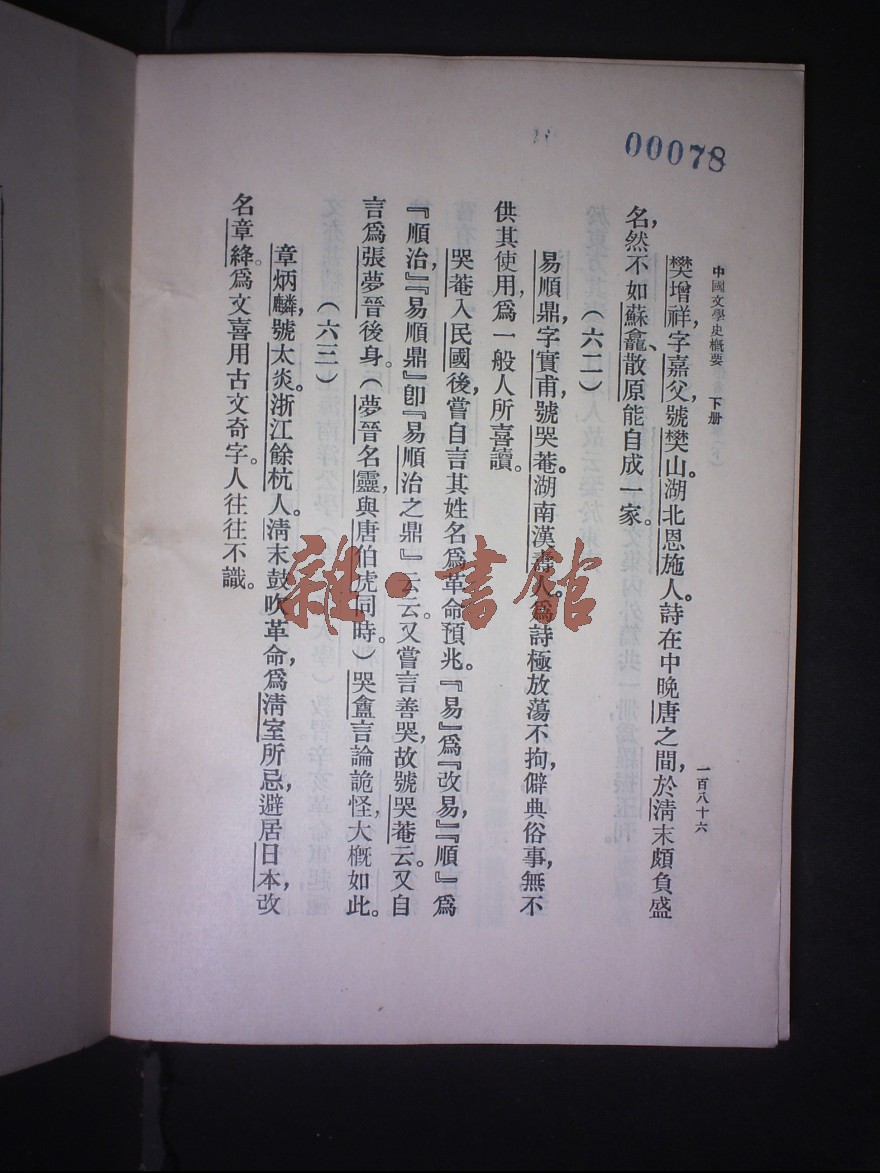 00078
中國文學史概要 下册 一百八十六
樊增祥，字嘉父，號樊山。湖北恩施人。詩在中晚唐之間，於清末頗負盛
名，然不如蘇龕、散原能自成一家。
（六二）
易順鼎，字實甫，號哭菴。湖南漢壽人。爲詩極放蕩不拘，僻典俗事，無不
供其使用，爲一般人所喜讀。
哭菴入民國後，嘗自言其姓名爲革命預兆。『易』爲『改易』，『順』爲
『順治』，『易順鼎』卽『易順治之鼎』云云。又嘗言善哭，故號哭菴云。又自
言爲張夢晉後身。（夢晉名靈，與唐伯虎同時。）哭盦言論詭怪，大概如此。
（六三）
章炳麟，號太炎。浙江餘杭人。清末鼓吹革命，爲清室所忌，避居日本，改
名章絳。爲文喜用古文奇字。人往往不識。
雜·書館